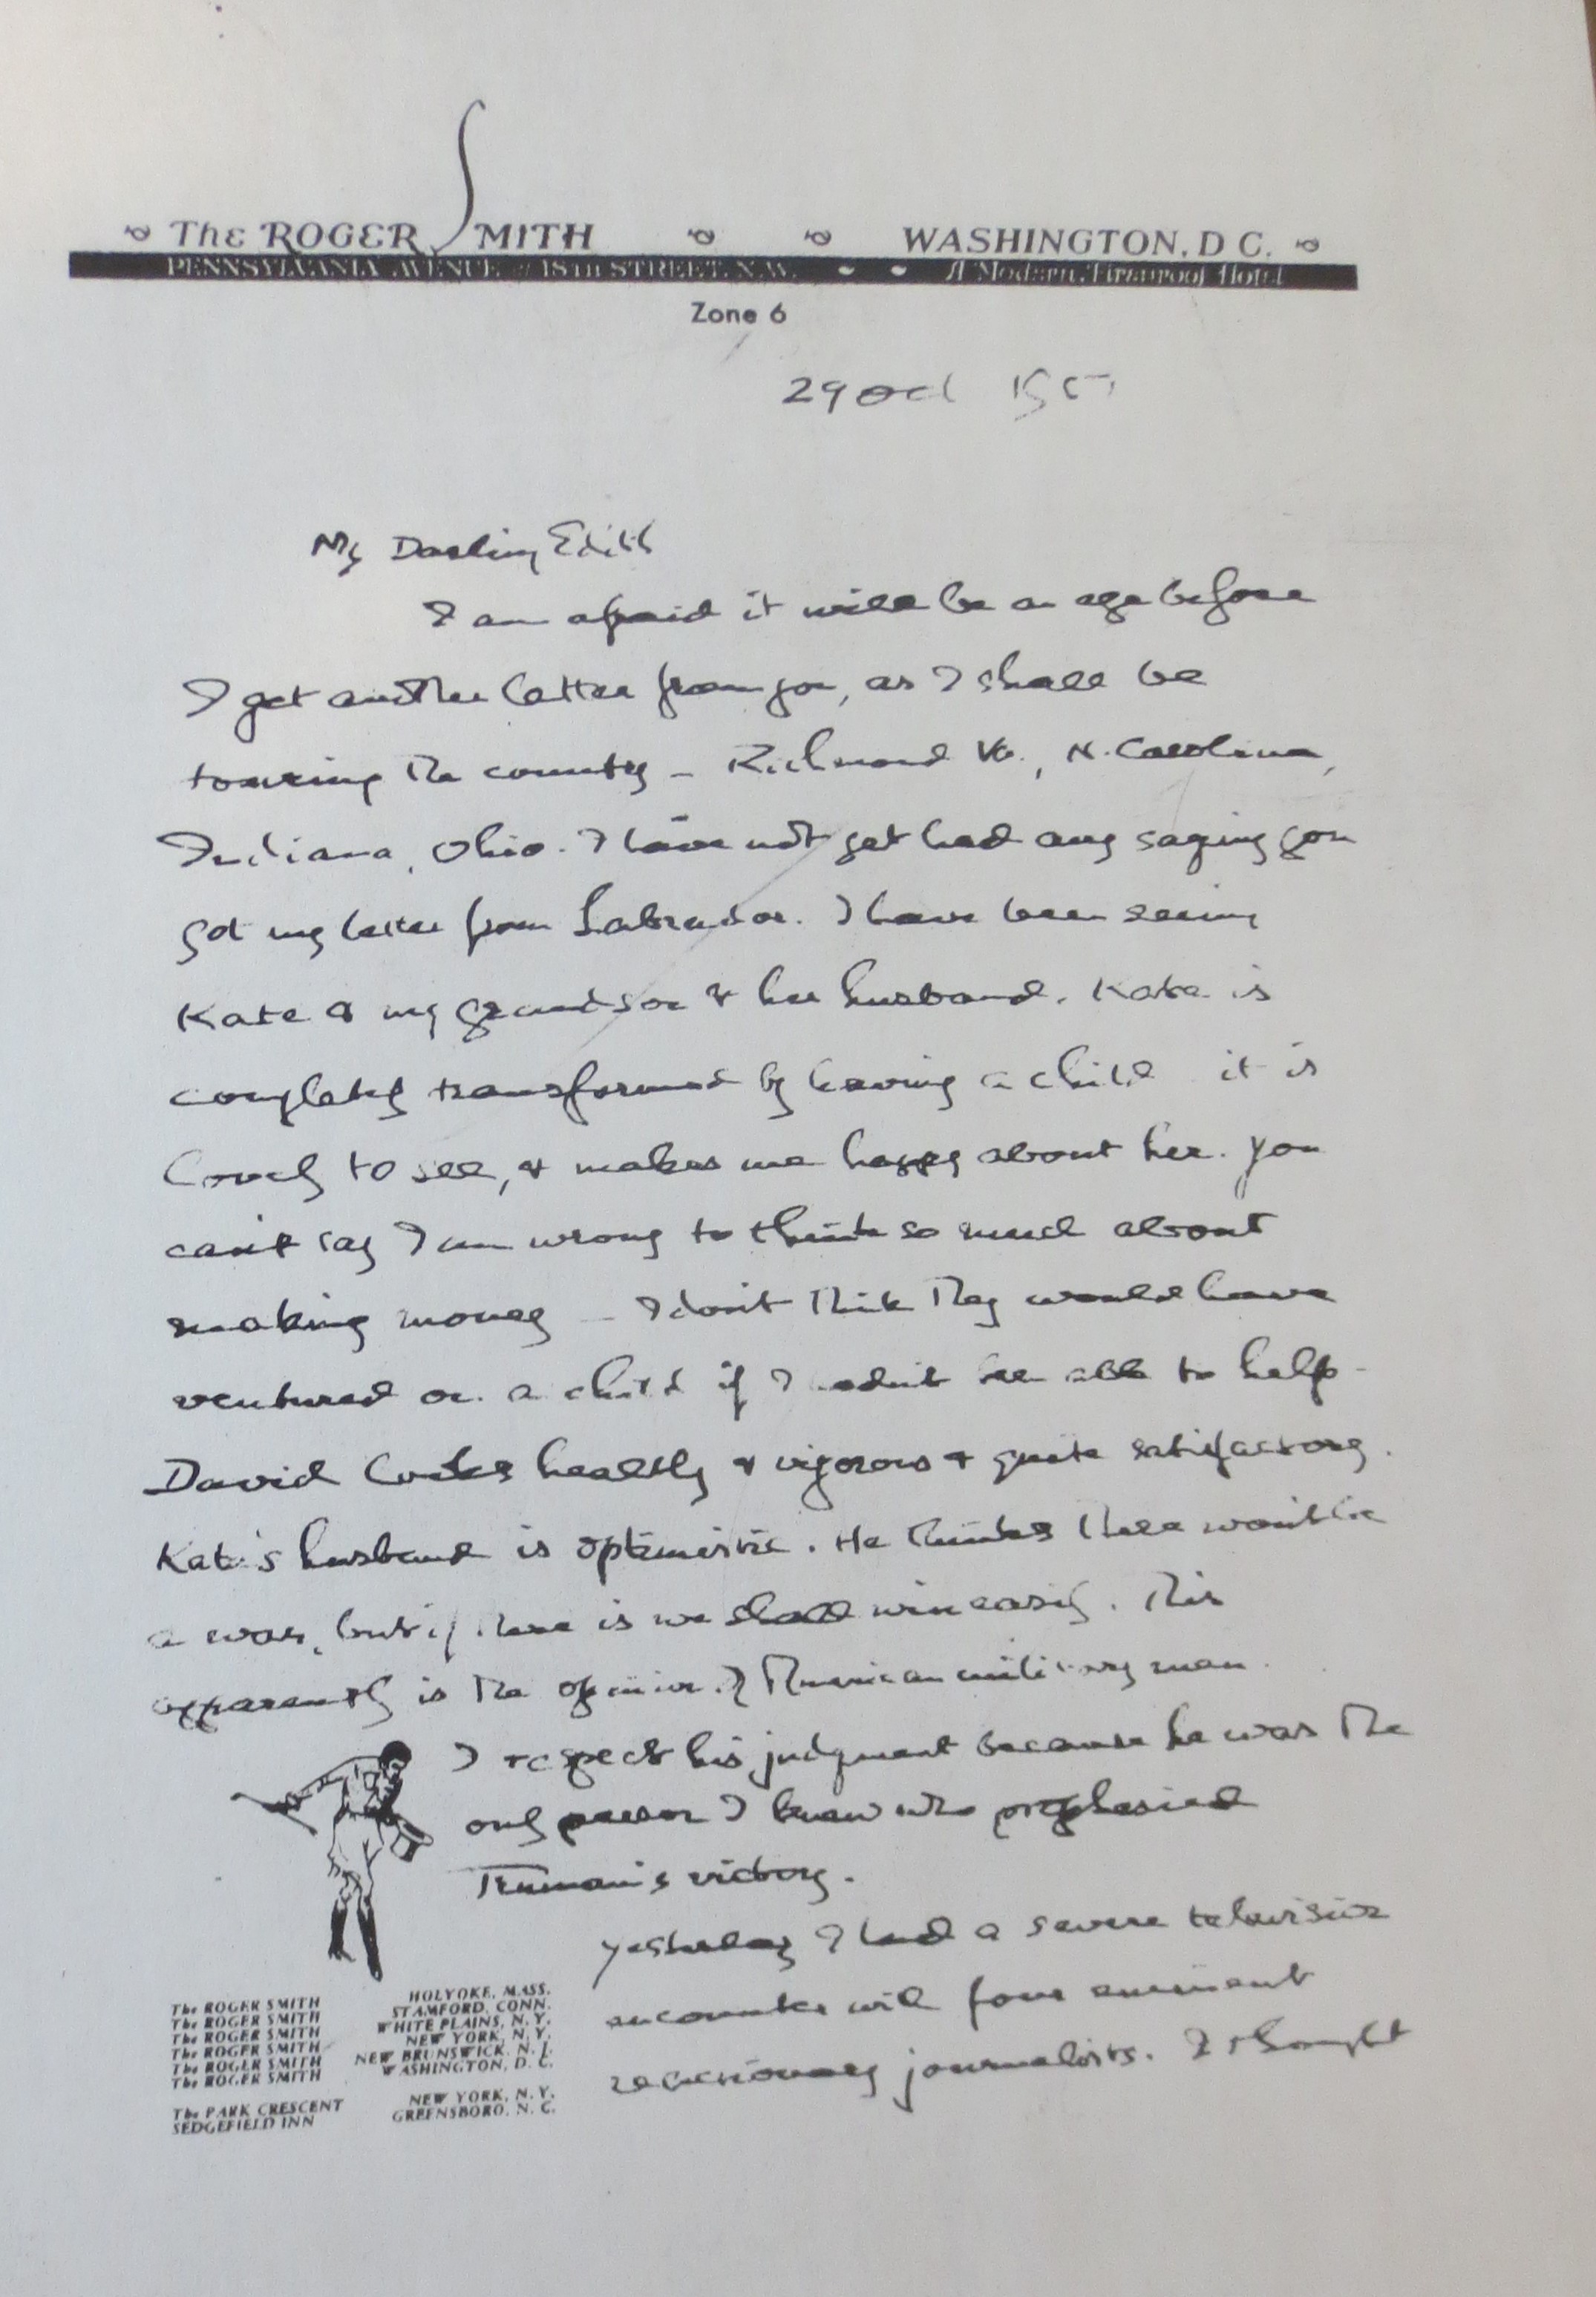 The ROGER SMITH WASHINGTON, D C.
PENNSYLVANIA AVENUE at 18TH STREET, N.W. A Modern, Fireproof Hotel
Zone 6
29 Oct
My Darling Edith
I am afraid it will be an age before
I get another letter from you, as I shall be
touring the country – Richmond Va., N. Carolina,
Indiana, Ohio. I have not yet had any saying you
got my letter from Labrador. I have been seeing
Kate & my grandson & her husband. Kate is
completely transformed by having a child it is
lovely to see, & makes me happy about her. You
can't say I am wrong to think so much about
making money – I don't think they would have
ventured on a child if I hadn't been able to help –
David looks healthy & vigorous & quite satisfactory.
Kate's husband is optimistic. He thinks there won't be
a war, but if there is we shall win easily. This
apparently is the opinion of American military men.
I respect his judgment because he was the
only person I knew who prophesied
Truman's victory.
Yesterday I had a severe television
encounter with four eminent
reactionary journalists. I thought
The ROGER SMITH HOLYOKE, MASS.
The ROGER SMITH STAMFORD, CONN.
The ROGER SMITH WHITE PLAINS, N.Y.
The ROGER SMITH NEW YORK, N.Y.
The ROGER SMITH NEW BRUNSWICK, N.J.
The ROGER SMITH WASHINGTON, D.C.
The PARK CRESCENT NEW YORK, N.Y.
SEDGEFIELD INN GREENSBORO, N.C.